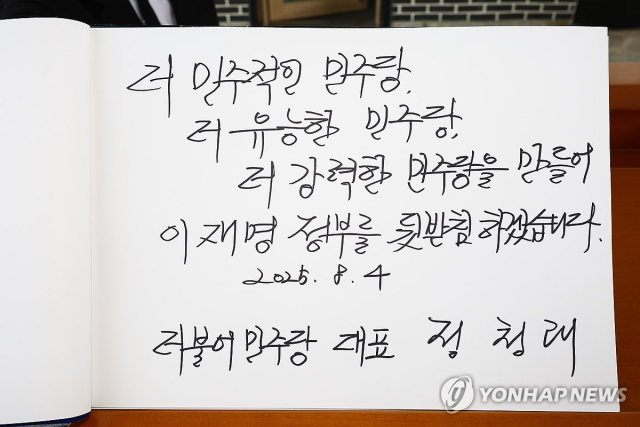 더 민주적인 민주당,
더 유능한 민주당,
더 강력한 민주당을 만들어
이재명 정부를 뒷받침하겠습니다.
2025. 8. 4
더불어민주당 대표 정청래
YONHAP NEWS